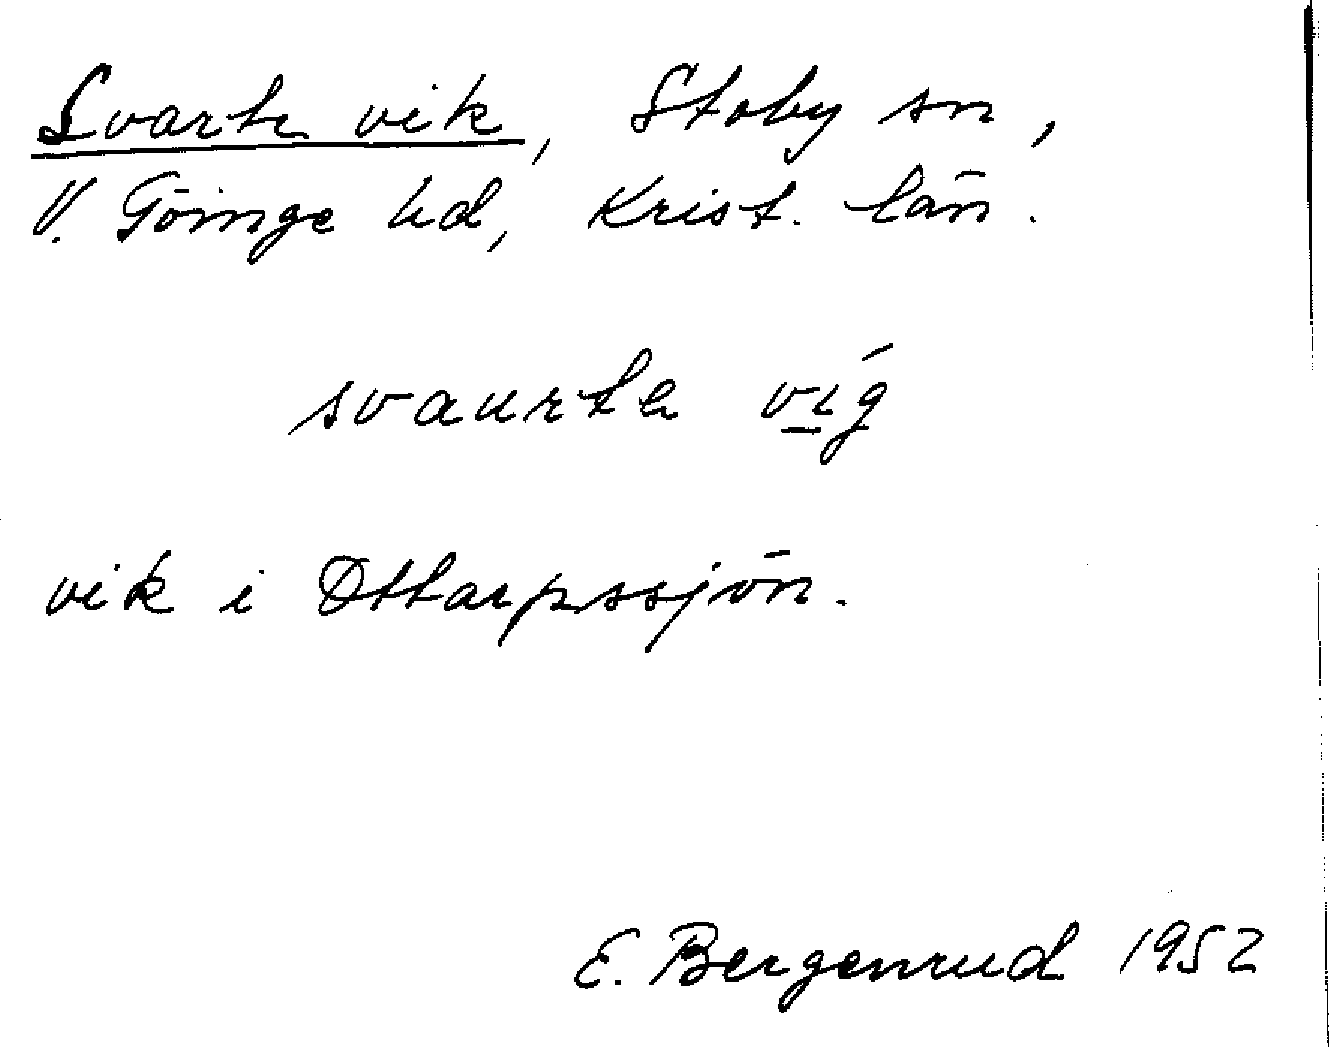 Svarte vik, Stoby sn,
V. Göinge hd, Krist. län.
svaurte víg
vik i Ottarpssjön.
E. Bergenrud 1952